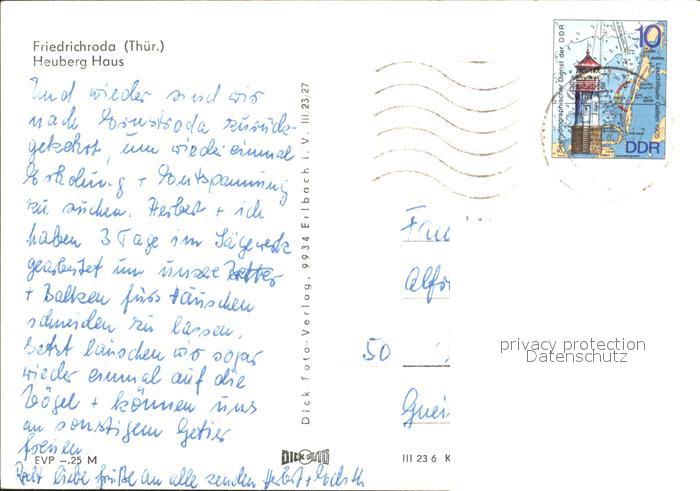 Friedrichroda (Thür.)
Heuberg Haus
Und wieder sind wir
nach Ernstroda zurück-
gekehrt, um wieder einmal
Erholung + Entspannung
zu suchen. Herbert + ich
haben 3 Tage im Sägewerk
gearbeitet um unsere
+ Balken fürs Häuschen
schneiden zu lassen.
Jetzt lauschen wir sogar
wieder einmal auf die
Vögel + können uns
an sonstigem Getier
freuen
EVP –.25 M
liebe Grüße an alle senden Herbert +
Dick Foto-Verlag, 9934 Erlbach i. V. III 23. 27
DICK FOTO
III 23 6 K
Seehydrographischer Dienst der DDR
10
DDR
50
privacy protection
Datenschutz